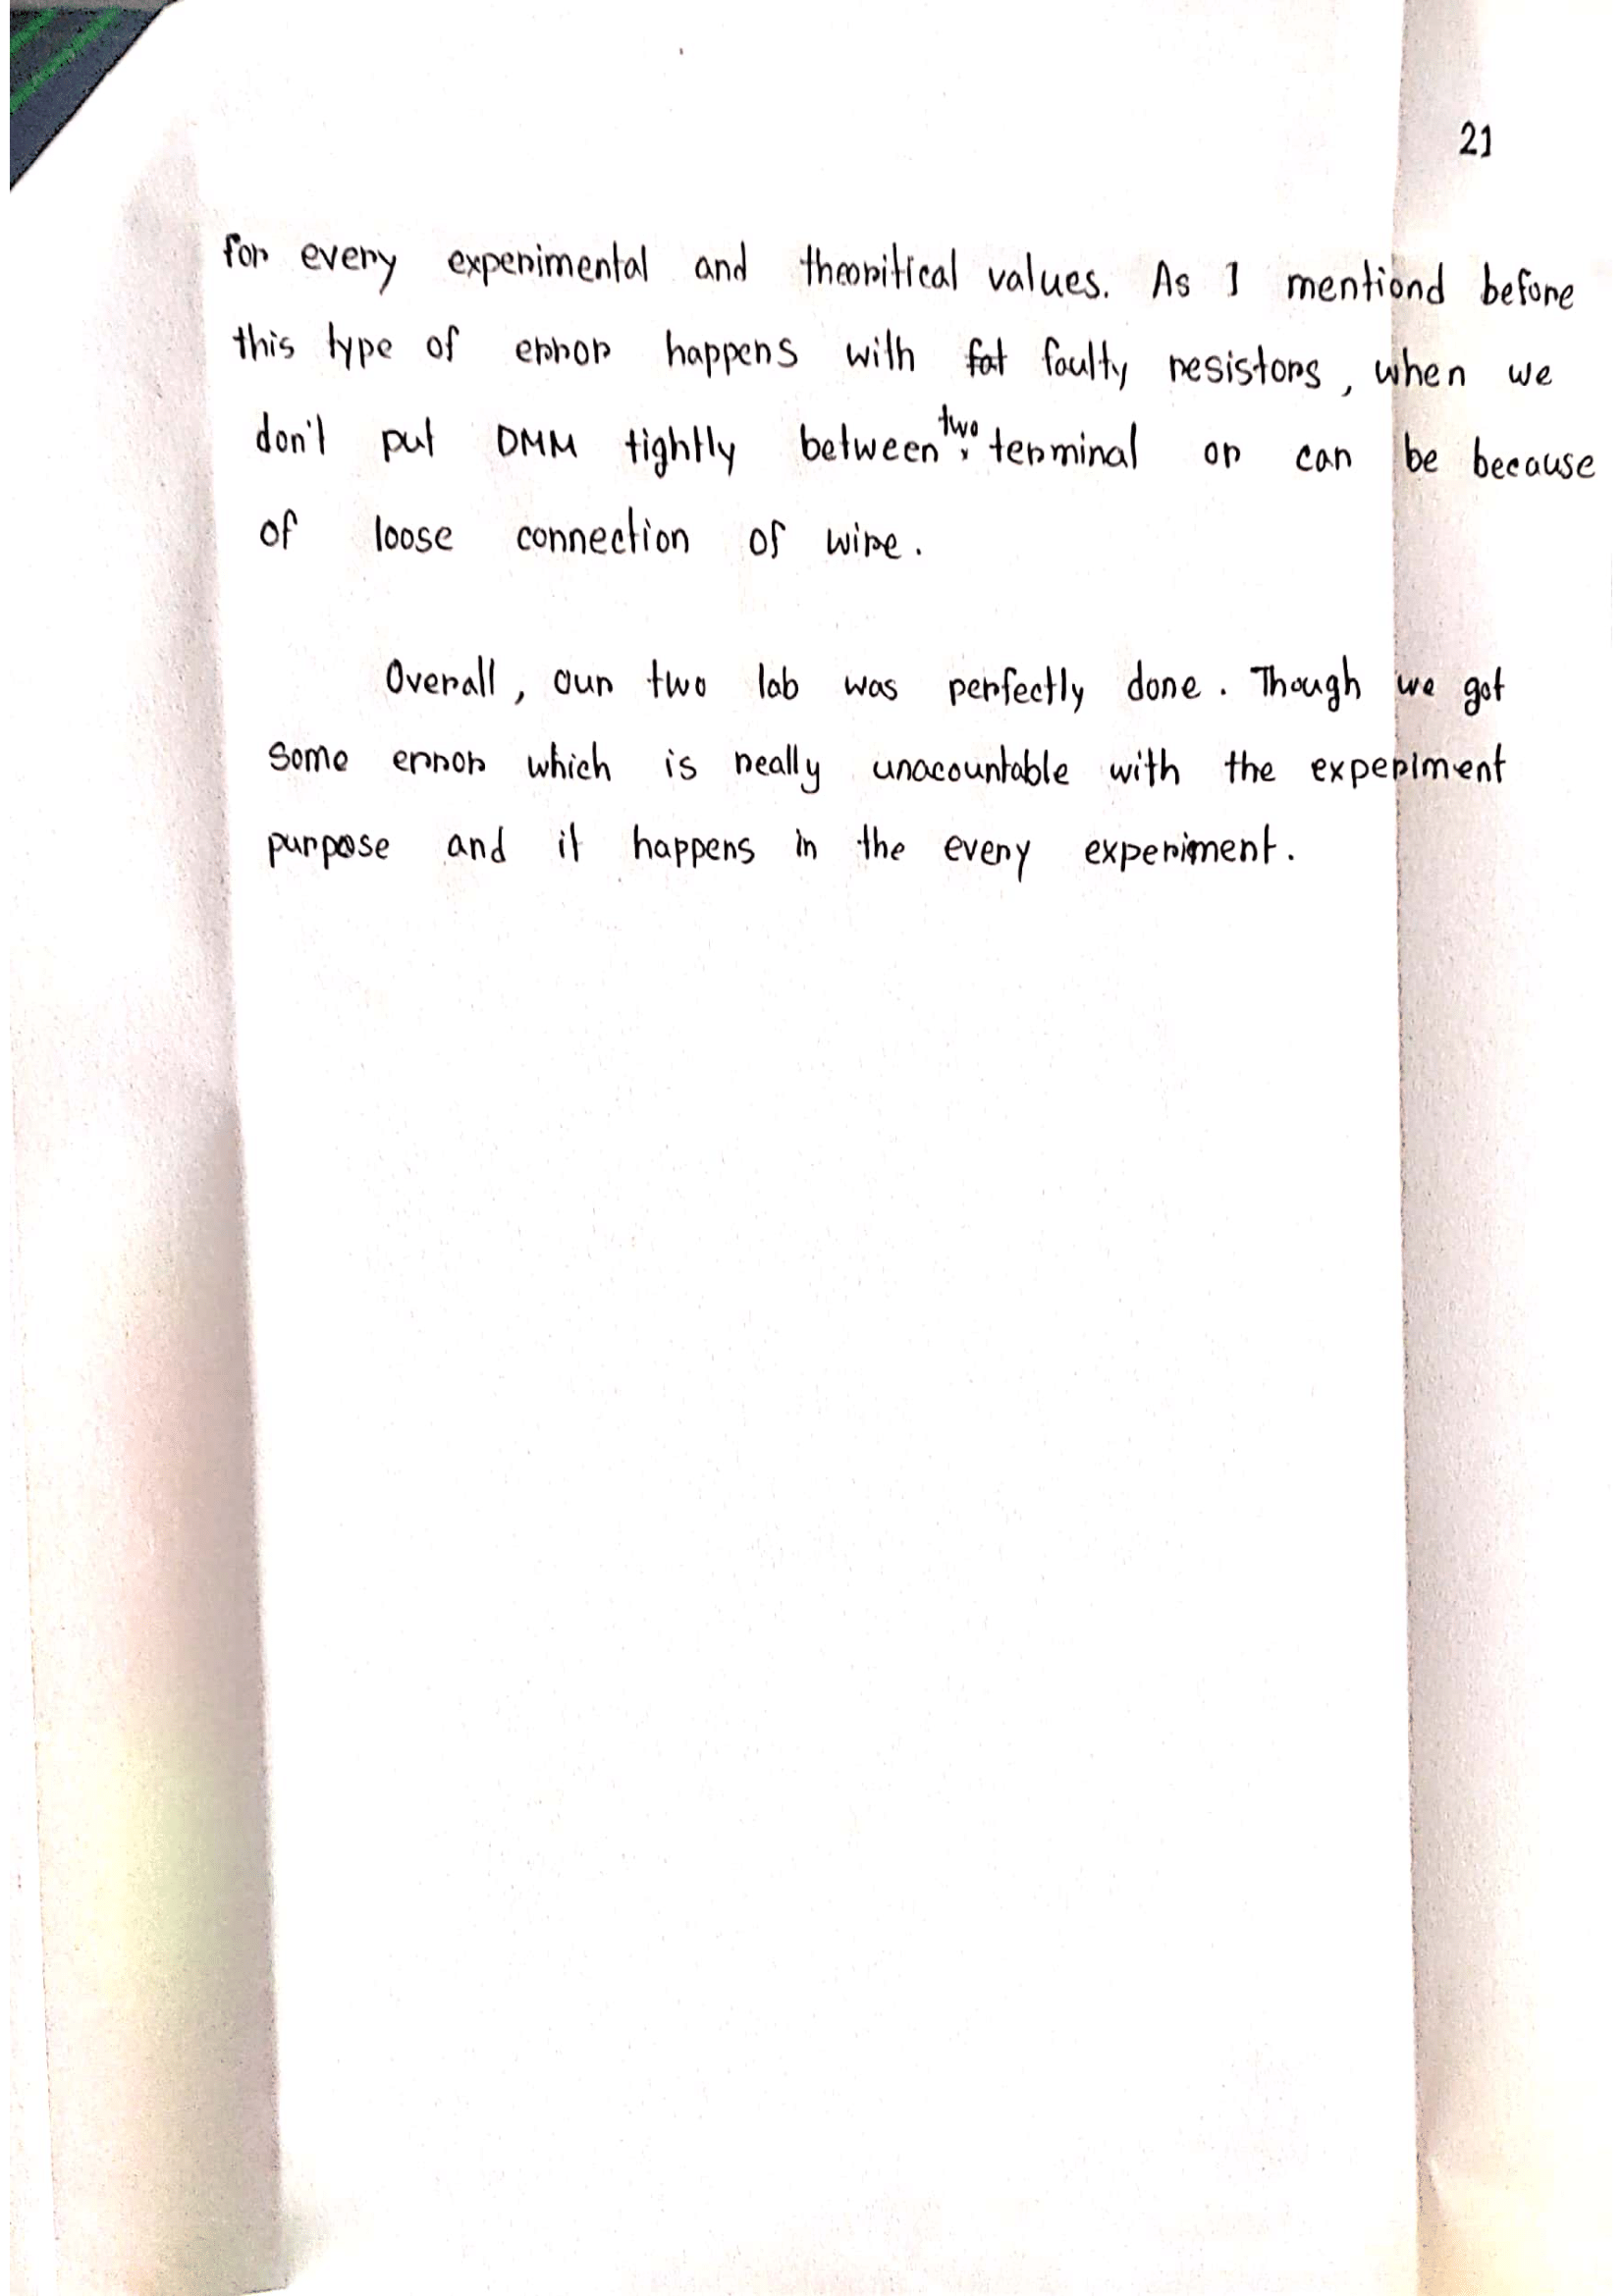 21
for every experimental and theoritical values. As I mentiond before
this type of error happens with fat faulty resistors, when we
don't put DMM tightly between two terminal or can be because
of loose connection of wire.
Overall, our two lab was perfectly done. Though we got
some error which is really unacountable with the experiment
purpose and it happens in the every experiment.